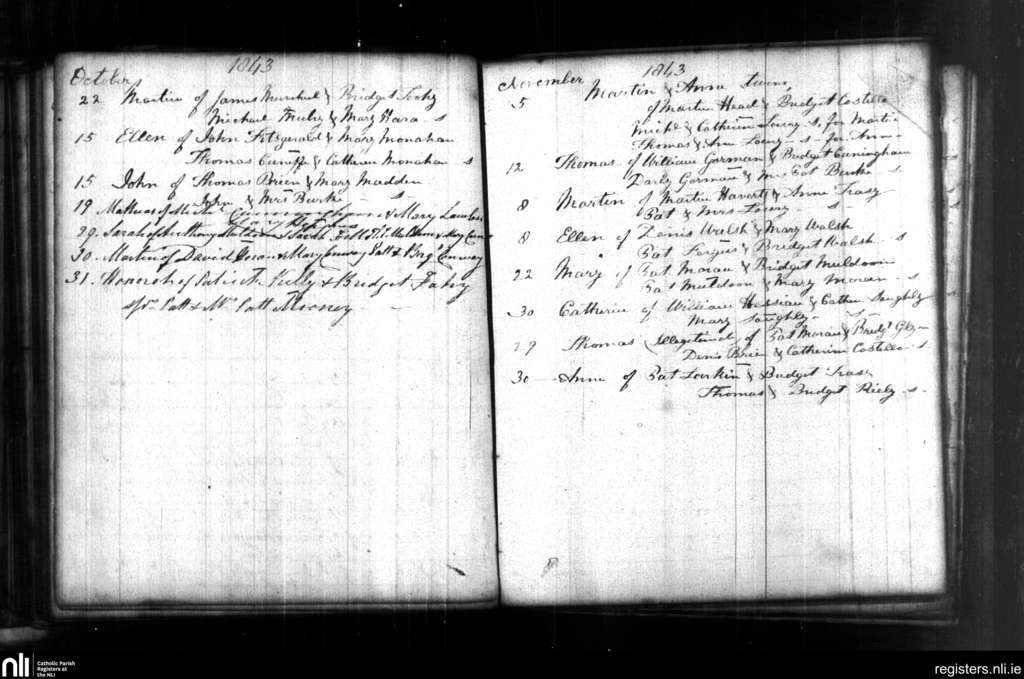 October 1843
22 Martin of James & Bridget
Michael & Mary Hara s
15 Ellen of John Fitzgerald & Mary Monahan
Thomas & Catherin Monahan s
15 John of Thomas Brien & Mary Madden
John & Mrs Burke s
19 Mathias of & Mary
29. Sarah of Anthony & Sarah & Mary
30. Martin of David & Mary Conway Patt & Conway
31. Honorah of Patrick Kelly & Bridget Fahy
Spr Patt & Mrs Patt Mooney
November 1843
5 Martin & Anne twins
of Martin Head & Bridget Costello
Michl & Catherin s. for Martin
Thomas & Ann s - for Ann
12 Thomas of William Gorman & Bridget Cuningham
Darby Gorman & Mrs Pat Burke s.
8 Martin of Martin Haverty & Anne Trasy
Pat & Mrs s
8 Ellen of Denis Walsh & Mary Walsh
Pat Fergus & Bridget Walsh. s
22 Mary of Pat Moran & Bridget Muldoon
Pat Muldoon & Mary Moran. s
30 Catherin of William Hessian & Cather
Mary s
29 Thomas (Illegitimate) of Pat Moran & Bridgt
Denis Brien & Catherin Costello. s
30 Anne of Pat Larkin & Bridget Trasy
Thomas & Bridget Riely s.
nli Catholic Parish
Registers at
the NLI
registers.nli.ie